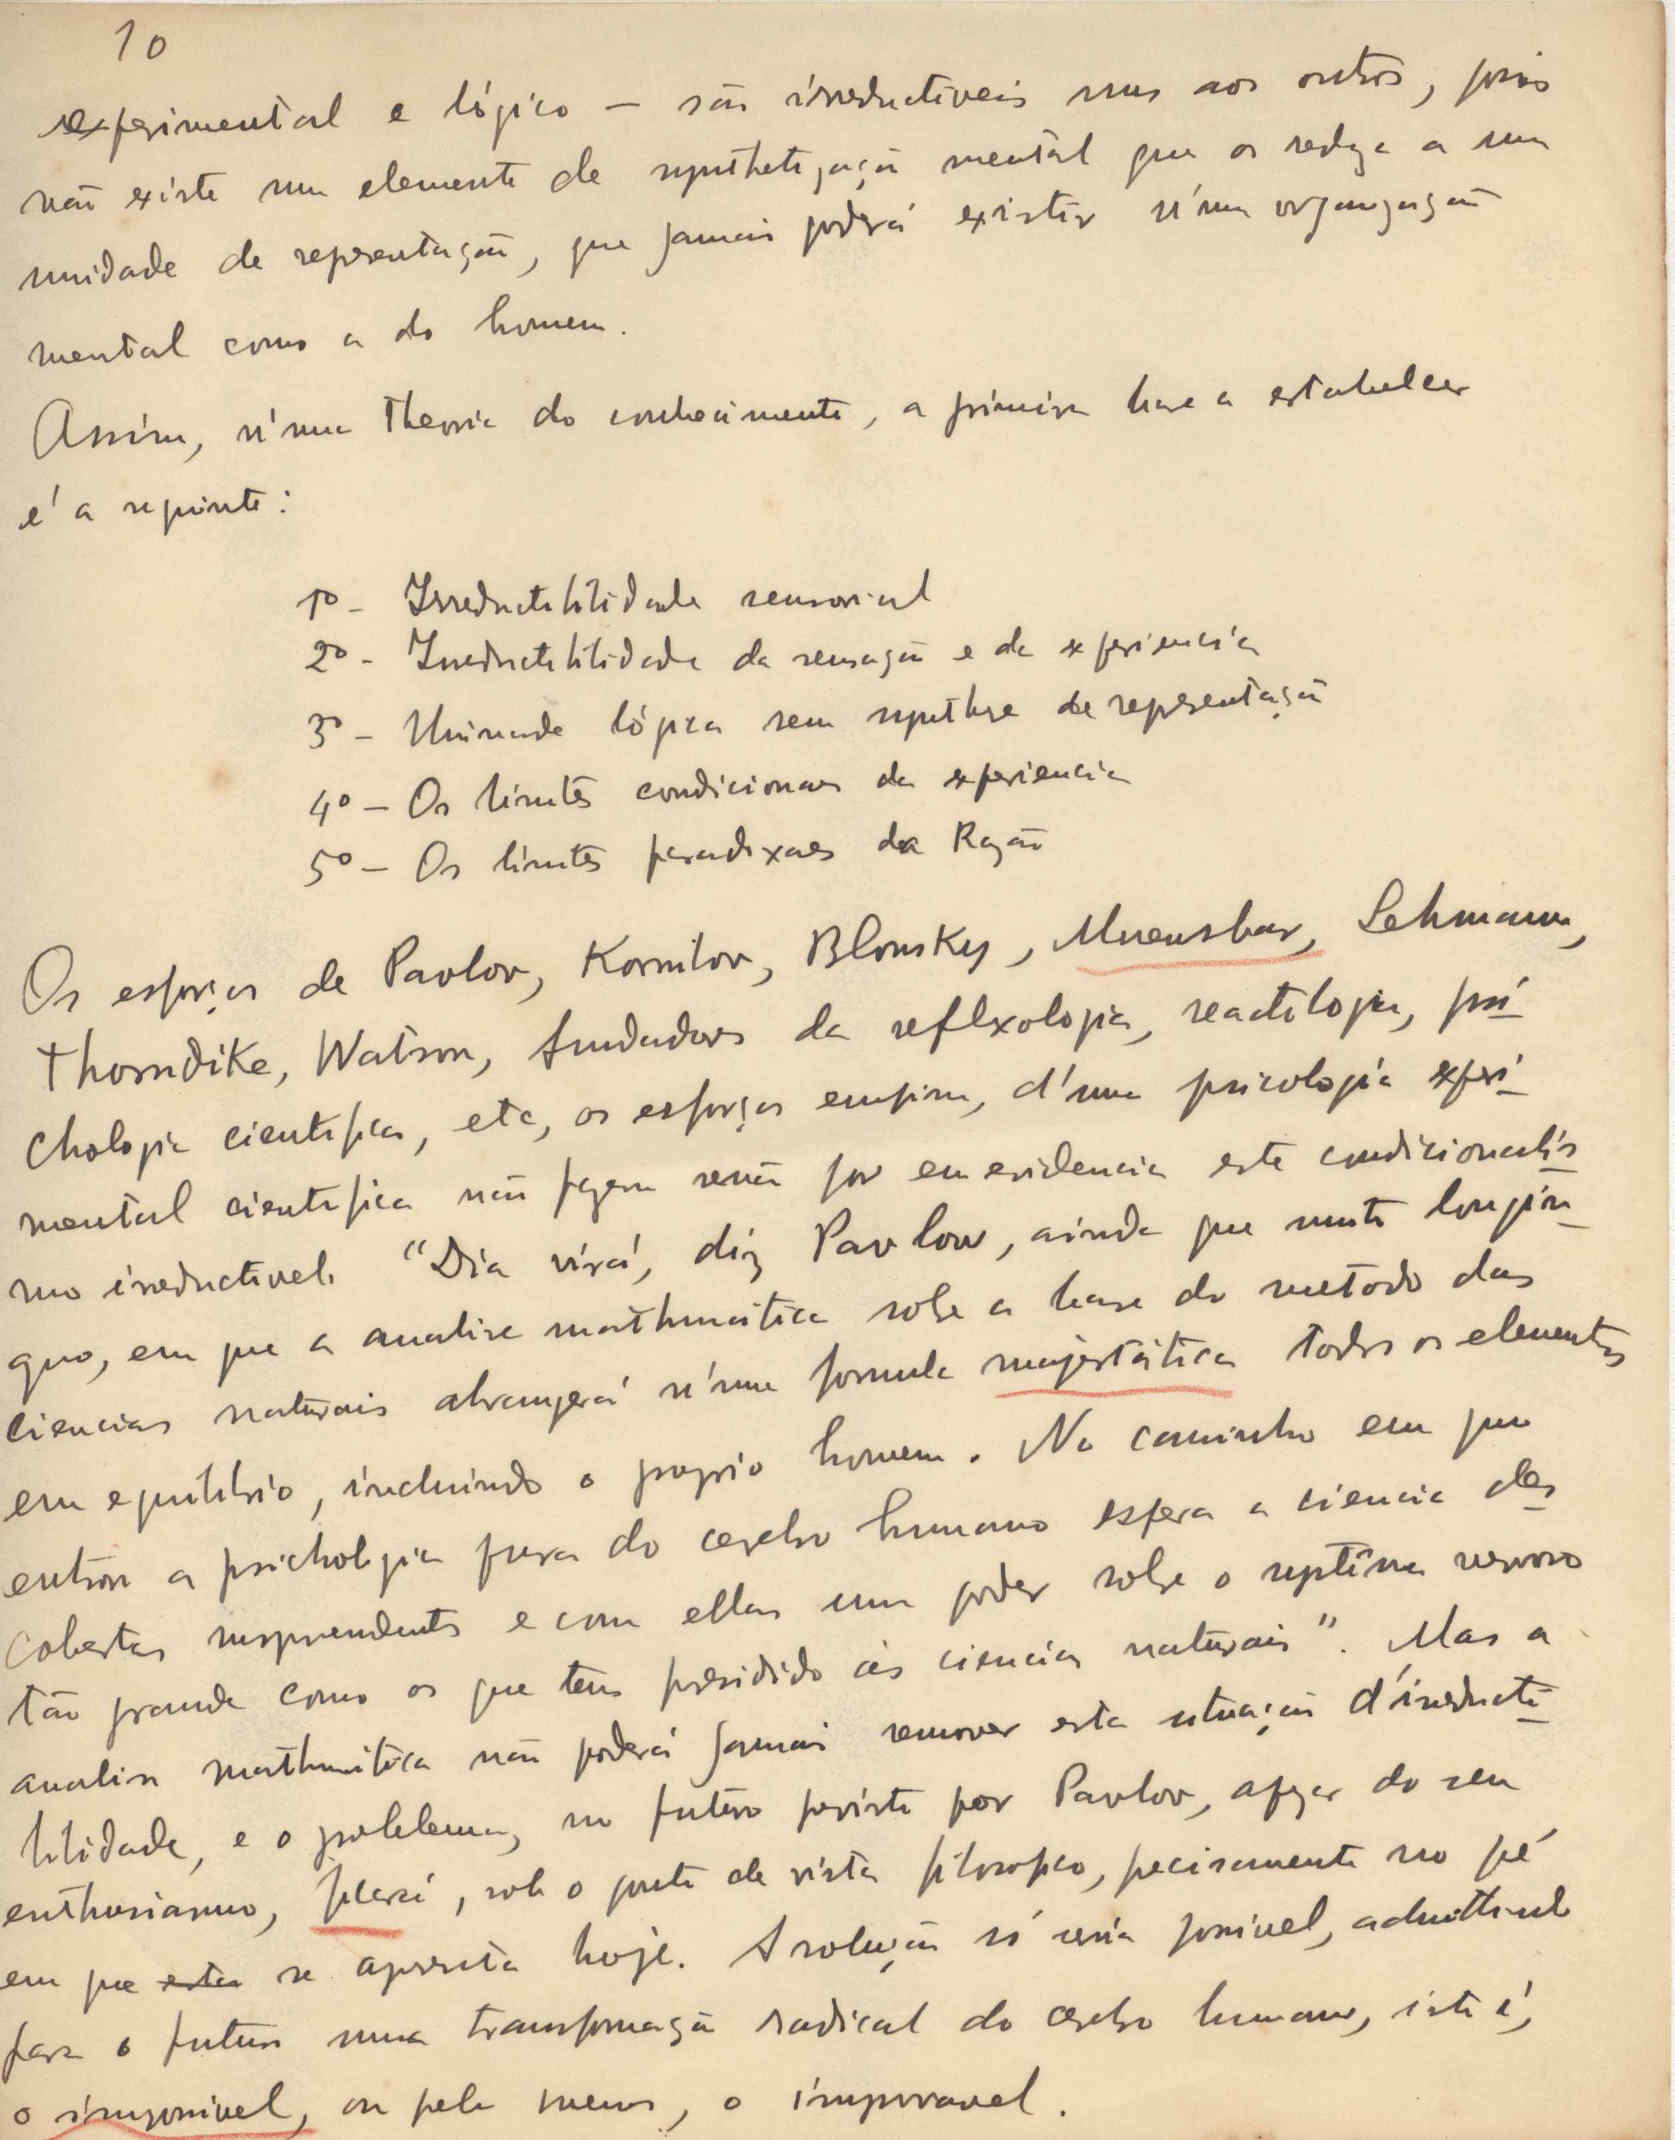 10
experimental e lógico — são irreductiveis uns aos outros, pois
não existe um elemento de synthetização mental que os reduza a uma
unidade de representação, que jamais poderá existir n'uma organização
mental como a do homem.
Assim, n'uma theoria do conhecimento, a primeira base a estabelecer
é a seguinte:
1º - Irreductibilidade sensorial
2º - Irreductibilidade da sensação e da experiencia
3º - Unidade lógica sem synthese de representação
4º - Os limites condicionaes da experiencia
5º - Os limites paradoxaes da Razão
Os esforços de Pavlov, Kornilov, Blonsky, Lehmann,
Thorndike, Watson, fundadores da reflexologia, reactologia, psi-
chologia cientifica, etc, os esforços emfim, d'uma psicologia experi-
mental cientifica não fazem senão pôr em evidencia este condicionalis-
mo irreductivel. "Dia virá, diz Pavlow, ainda que muito longin-
quo, em que a analise mathmática sobre a base do metodo das
ciencias naturais abrangerá n'uma formula majestática todos os elementos
em equilibrio, incluindo o proprio homem. No caminho em que
entrou a psichologia pura do cerebro humano espera a ciencia des-
cobertas surprendentes e com ellas um poder sobre o systêma nervoso
tão grande como os que tem presidido ás ciencias naturais". Mas a
analise mathmática não poderá jamais remover esta situação d'irreducti-
bilidade, e o problema, no futuro previsto por Pavlov, apezar do seu
enthusiasmo, ficará, sob o ponto de vista filosofico, precisamente no pé
em que esta se apresenta hoje. A solução só seria possivel, admittindo
para o futuro uma transformação radical do cerebro humano, isto é,
o impossivel, ou pelo menos, o improvavel.